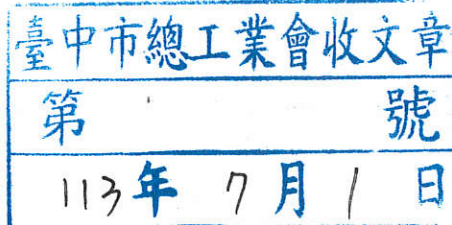 臺中市總工業會收文章
第 號
113年 7月 1日